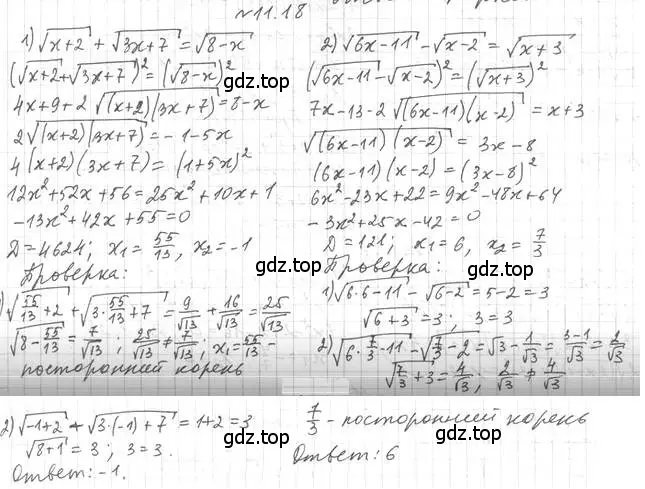 №11.18
1) √(x+2) + √(3x+7) = √(8-x)
(√(x+2) + √(3x+7))² = (√(8-x))²
4x+9+2√((x+2)(3x+7)) = 8-x
2√((x+2)(3x+7)) = -1-5x
4(x+2)(3x+7) = (1+5x)²
12x²+52x+56 = 25x²+10x+1
-13x²+42x+55=0
D=4624; x₁=55/13, x₂=-1
Проверка:
1) √(55/13+2) + √(3·55/13+7) = 9/√13 + 16/√13 = 25/√13
√(8-55/13) = 7/√13; 25/√13 ≠ 7/√13, x₁=55/13 -
посторонний корень
2) √(-1+2) + √(3·(-1)+7) = 1+2=3
√(8+1) = 3; 3=3.
Ответ: -1.
2) √(6x-11) - √(x-2) = √(x+3)
(√(6x-11) - √(x-2))² = (√(x+3))²
7x-13-2√((6x-11)(x-2)) = x+3
√((6x-11)(x-2)) = 3x-8
(6x-11)(x-2) = (3x-8)²
6x²-23x+22=9x²-48x+64
-3x²+25x-42=0
D=121; x₁=6, x₂=7/3
Проверка:
1) √(6·6-11) - √(6-2) = 5-2=3
√(6+3) = 3; 3=3
2) √(6·7/3-11) - √(7/3-2) = √3 - 1/√3 = (3-1)/√3 = 2/√3
√(7/3+3) = 4/√3; 2/√3 ≠ 4/√3
7/3 - посторонний корень
Ответ: 6
gdz.top
gdz.top
gdz.top
gdz.top
gdz.top
gdz.top
gdz.top